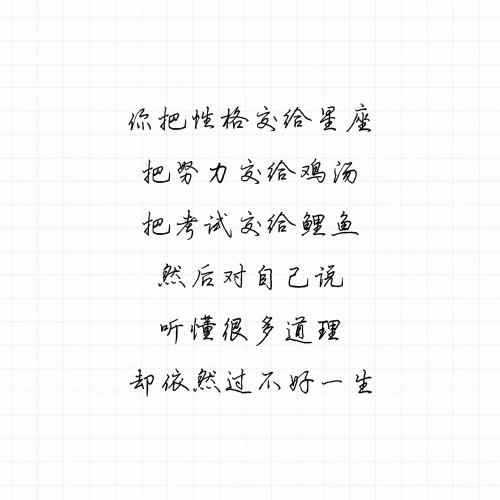 你把性格交给星座
把努力交给鸡汤
把考试交给鲤鱼
然后对自己说
听懂很多道理
却依然过不好一生